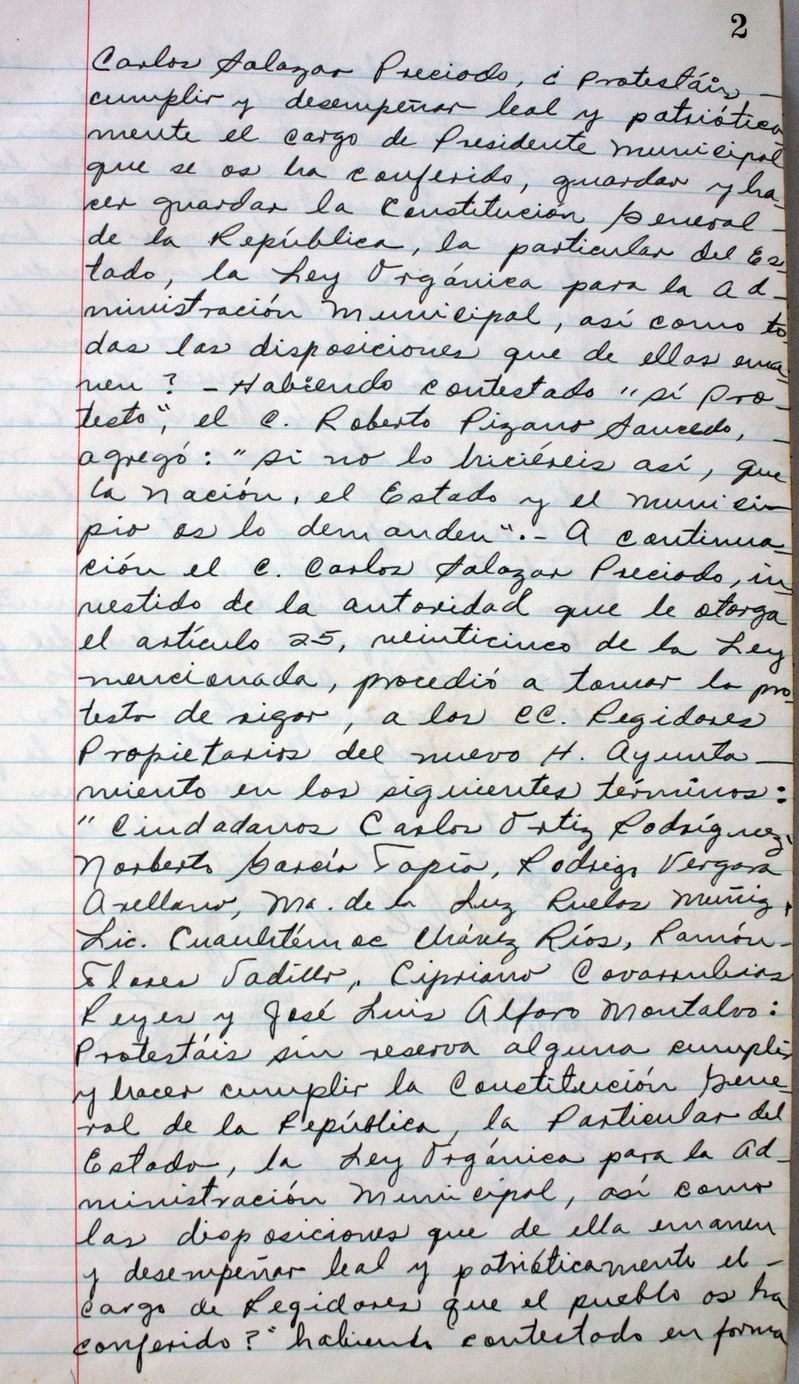 2
Carlos Salazar Preciado, ¿ Protestáis
cumplir y desempeñar leal y patriótica
mente el cargo de Presidente Municipal
que se os ha conferido, guardar y ha-
cer guardar la Constitución General -
de la República, la particular del Es-
tado, la Ley Orgánica para la Ad-
ministración Municipal, así como to-
das las disposiciones que de ellas ema-
nen ? - Habiendo contestado "sí pro-
testo", el C. Roberto Pizano Saucedo, -
agregó: "si no lo hiciéreis así, que
la Nación, el Estado y el Munici-
pio os lo demanden".- A continua-
ción el C. Carlos Salazar Preciado, in-
vestido de la autoridad que le otorga
el artículo 25, veinticinco de la Ley
mencionada, procedió a tomar la pro-
testa de rigor, a los CC. Regidores
Propietarios del nuevo H. Ayunta-
miento en los siguientes términos:
"Ciudadanos Carlos Ortiz Rodríguez,
Norberto García Tapia, Rodrigo Vergara
Arellano, Ma. de la Luz Ruelas Muñiz,
Lic. Cuauhtémoc Chávez Ríos, Ramón-
Flores Vadillo, Cipriano Covarrubias
Reyes y José Luis Alfaro Montalvo:
Protestáis sin reserva alguna cumplir
y hacer cumplir la Constitución Gene-
ral de la República, la Particular del
Estado, la Ley Orgánica para la Ad-
ministración Municipal, así como
las disposiciones que de ella emanen
y desempeñar leal y patrióticamente el -
cargo de Regidores que el pueblo os ha
conferido?" habiendo contestado en forma